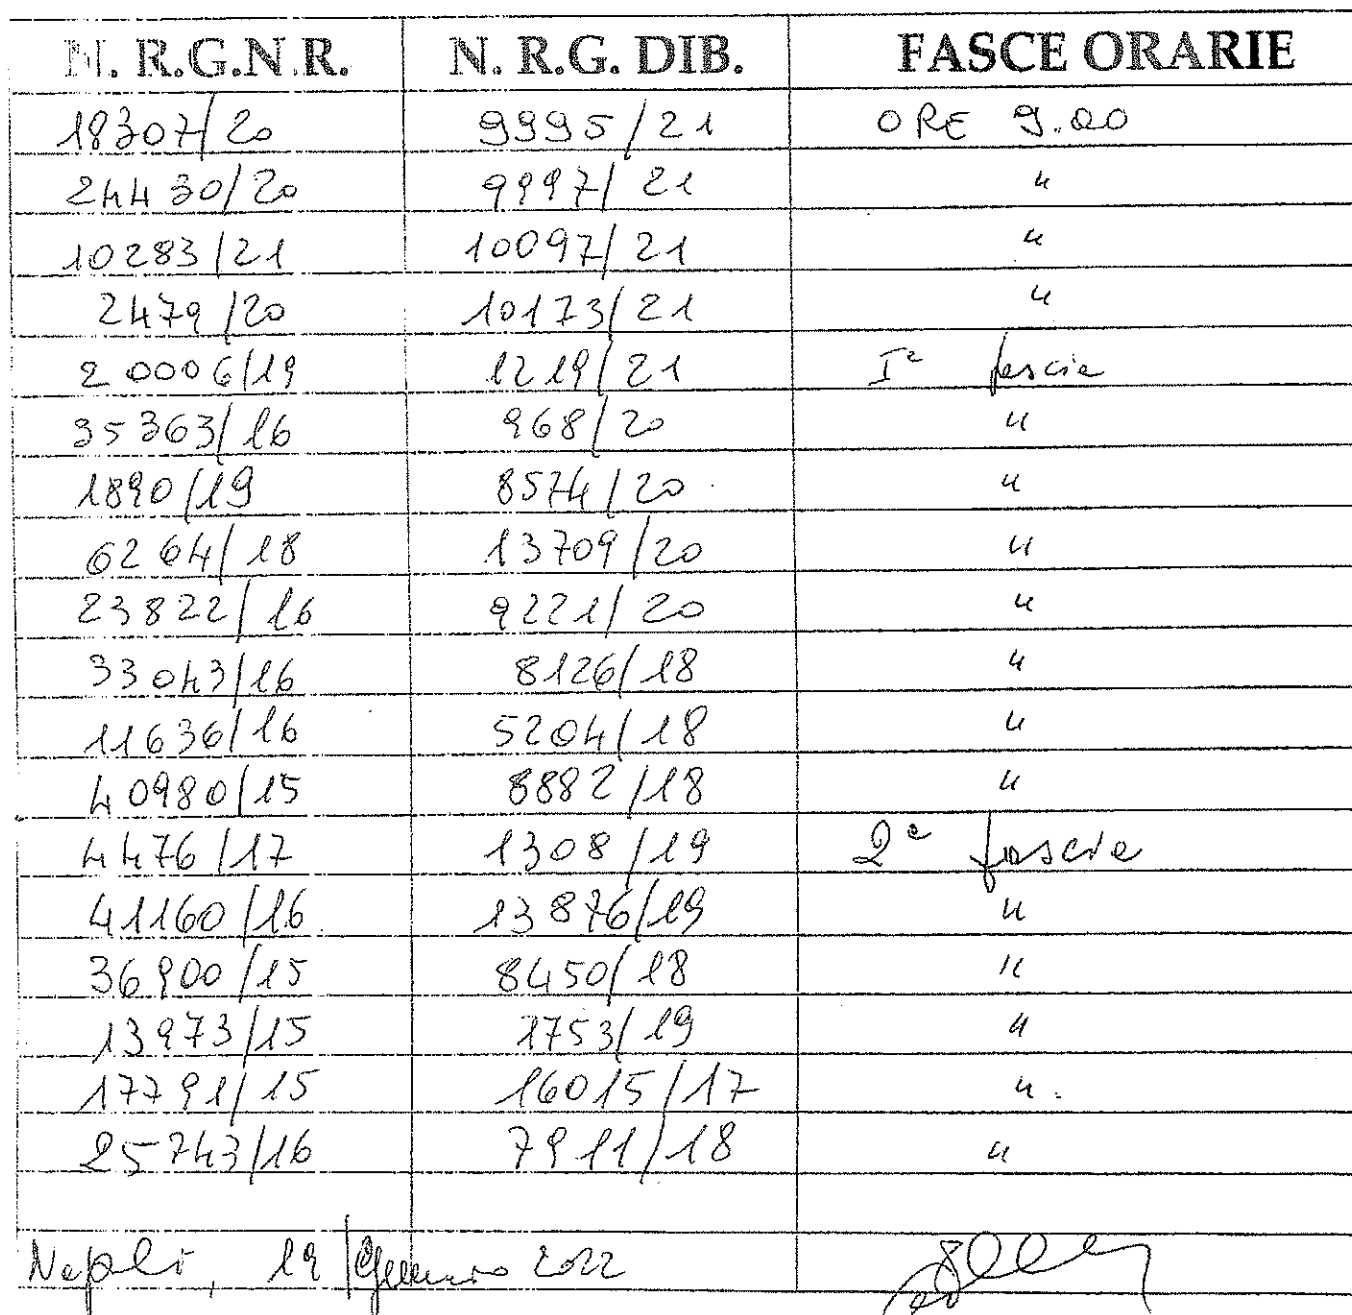 N. R.G.N.R. N. R.G. DIB. FASCE ORARIE
18307/20 9995/21 ORE 9.00
24430/20 9997/21 "
10283/21 10097/21 "
2479/20 10173/21 "
20006/19 1219/21 Iª fascia
35363/16 968/20 "
1890/19 8574/20 "
6264/18 13709/20 "
23822/16 9221/20 "
33043/16 8126/18 "
11636/16 5204/18 "
40980/15 8882/18 "
4476/17 1308/19 2ª fascia
41160/16 13876/19 "
36900/15 8450/18 "
13973/15 1753/19 "
17791/15 16015/17 "
25743/16 7911/18 "
Napoli, 19 Gennaio 2022